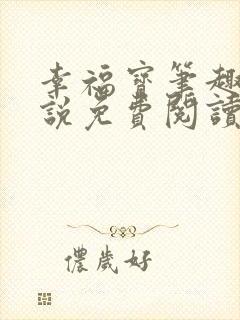 幸福寳筆趣
説免費閱讀
儂歲好